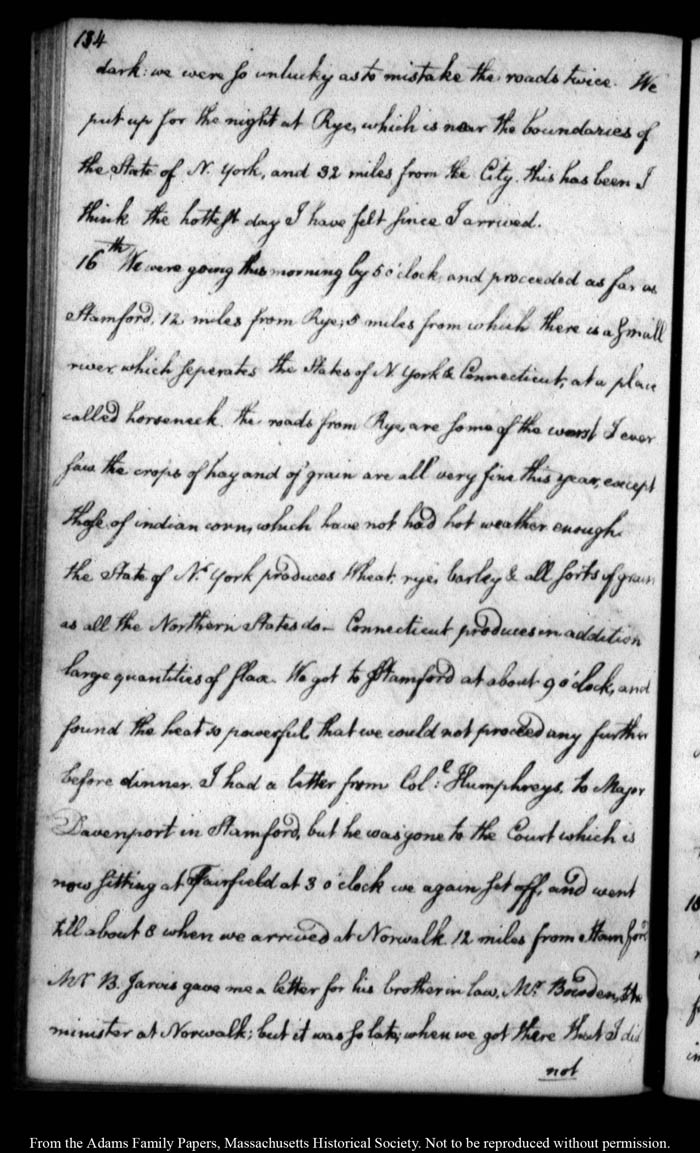 134
dark: we were so unlucky as to mistake the roads twice. We
put up for the night at Rye, which is near the boundaries of
the State of N. York, and 32 miles from the City. this has been I
think the hottest day I have felt since I arrived.
16th We were going this morning by 5 o'clock, and proceeded as far as
Stamford. 12 miles from Rye; 5 miles from which there is a small
river, which seperates the States of N. York & Connecticut, at a place
called horseneck. the roads from Rye, are some of the worst I ever
saw the crops of hay and of grain are all very fine this year, except
those of indian corn, which have not had hot weather enough.
the State of N. York produces Wheat, rye, barley & all sorts of grain
as all the Northern States do— Connecticut produces in addition
large quantities of flax. We got to Stamford at about 9 o'clock, and
found the heat so powerful, that we could not proceed any further
before dinner. I had a letter from Coll: Humphreys, to Major
Davenport in Stamford, but he was gone to the Court which is
now sitting at Fairfield at 3 o'clock we again set off, and went
till about 8 when we arrived at Norwalk 12 miles from Stamford
Mr B. Jarvis gave me a letter for his brother in law, Mr. Bowden, the
minister at Norwalk; but it was so late, when we got there that I did
not
From the Adams Family Papers, Massachusetts Historical Society. Not to be reproduced without permission.